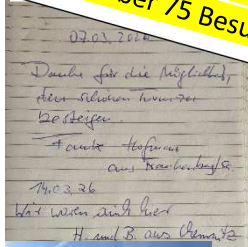 ber 75 Besu
07.03.2026
Danke für die Möglichkeit,
den schönen Turm zu
besteigen.
Hofmann
aus
14.03.26
Wir waren auch hier
H. und B. aus Chemnitz